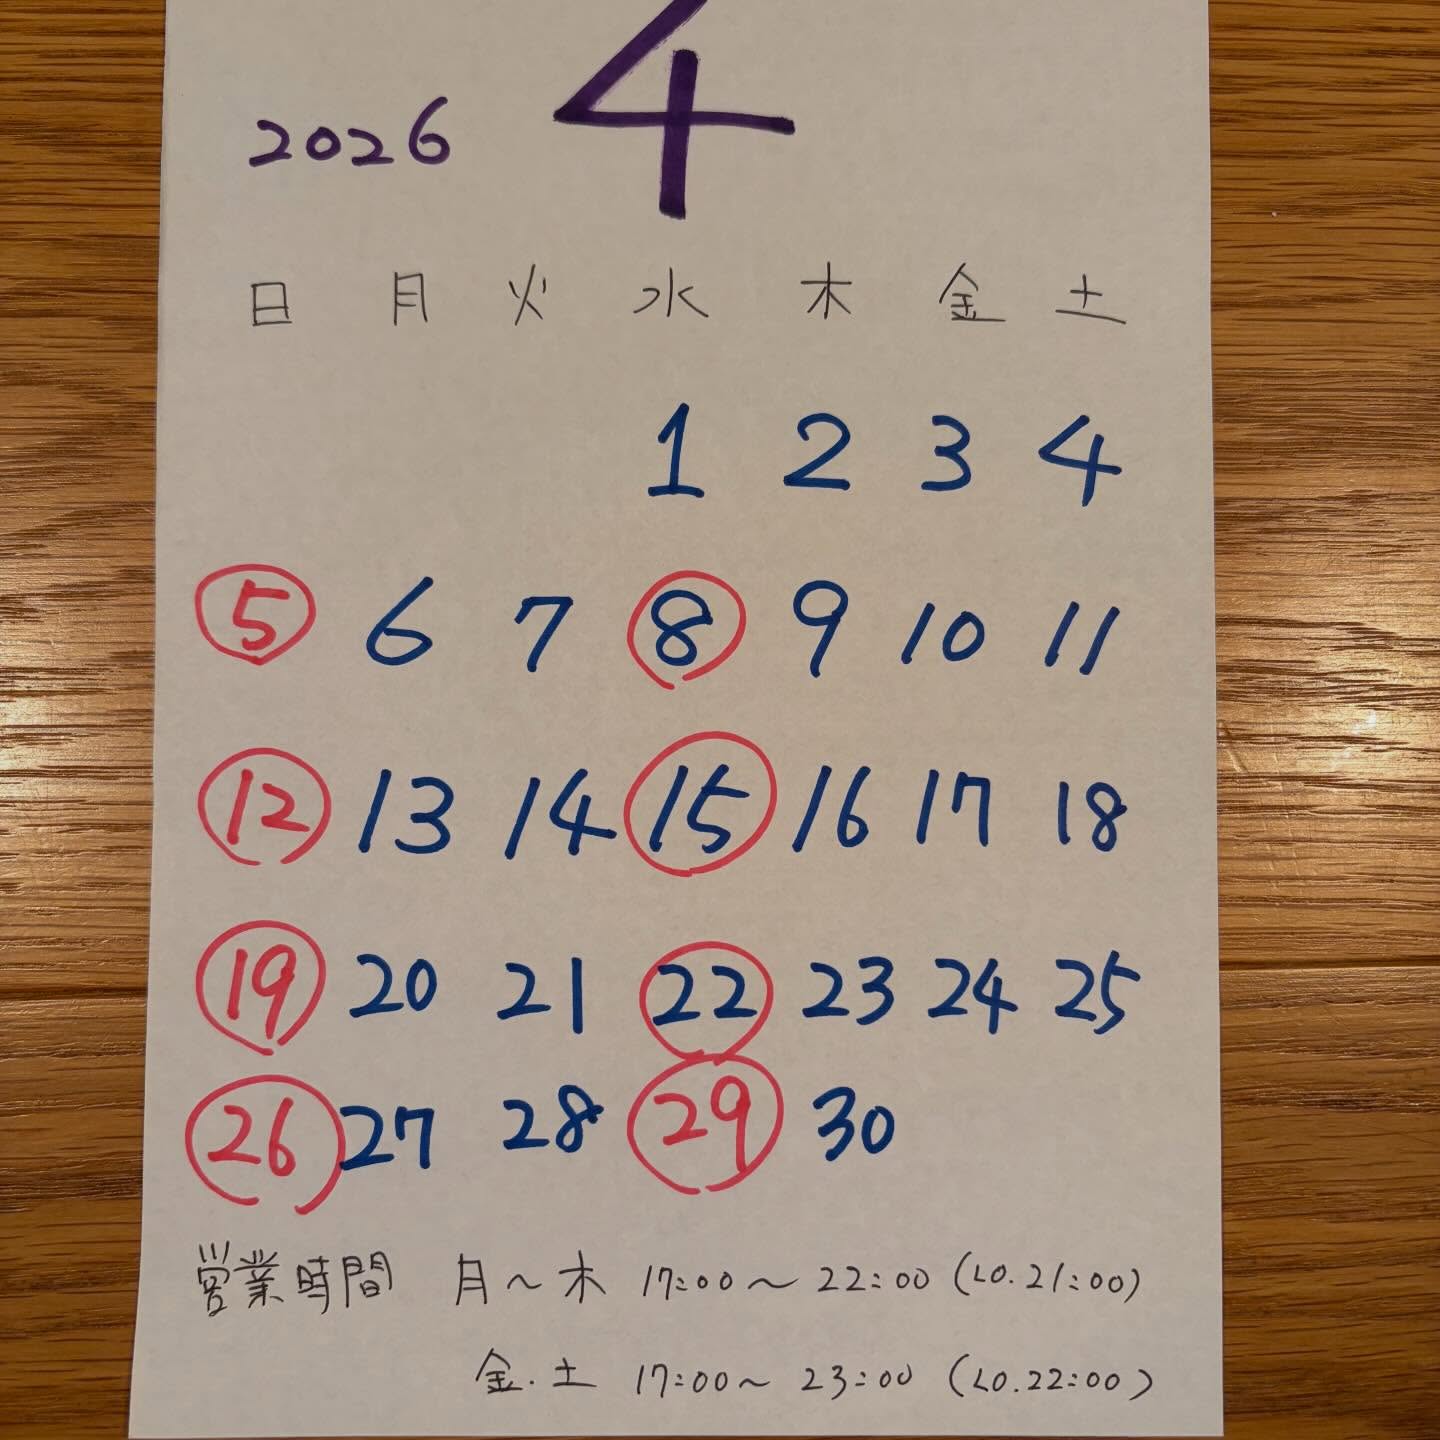 4
2026
日 月 火 水 木 金 土
1 2 3 4
5 6 7 8 9 10 11
12 13 14 15 16 17 18
19 20 21 22 23 24 25
26 27 28 29 30
営業時間 月～木 17:00～22:00 (LO.21:00)
金.土 17:00～23:00 (LO.22:00)